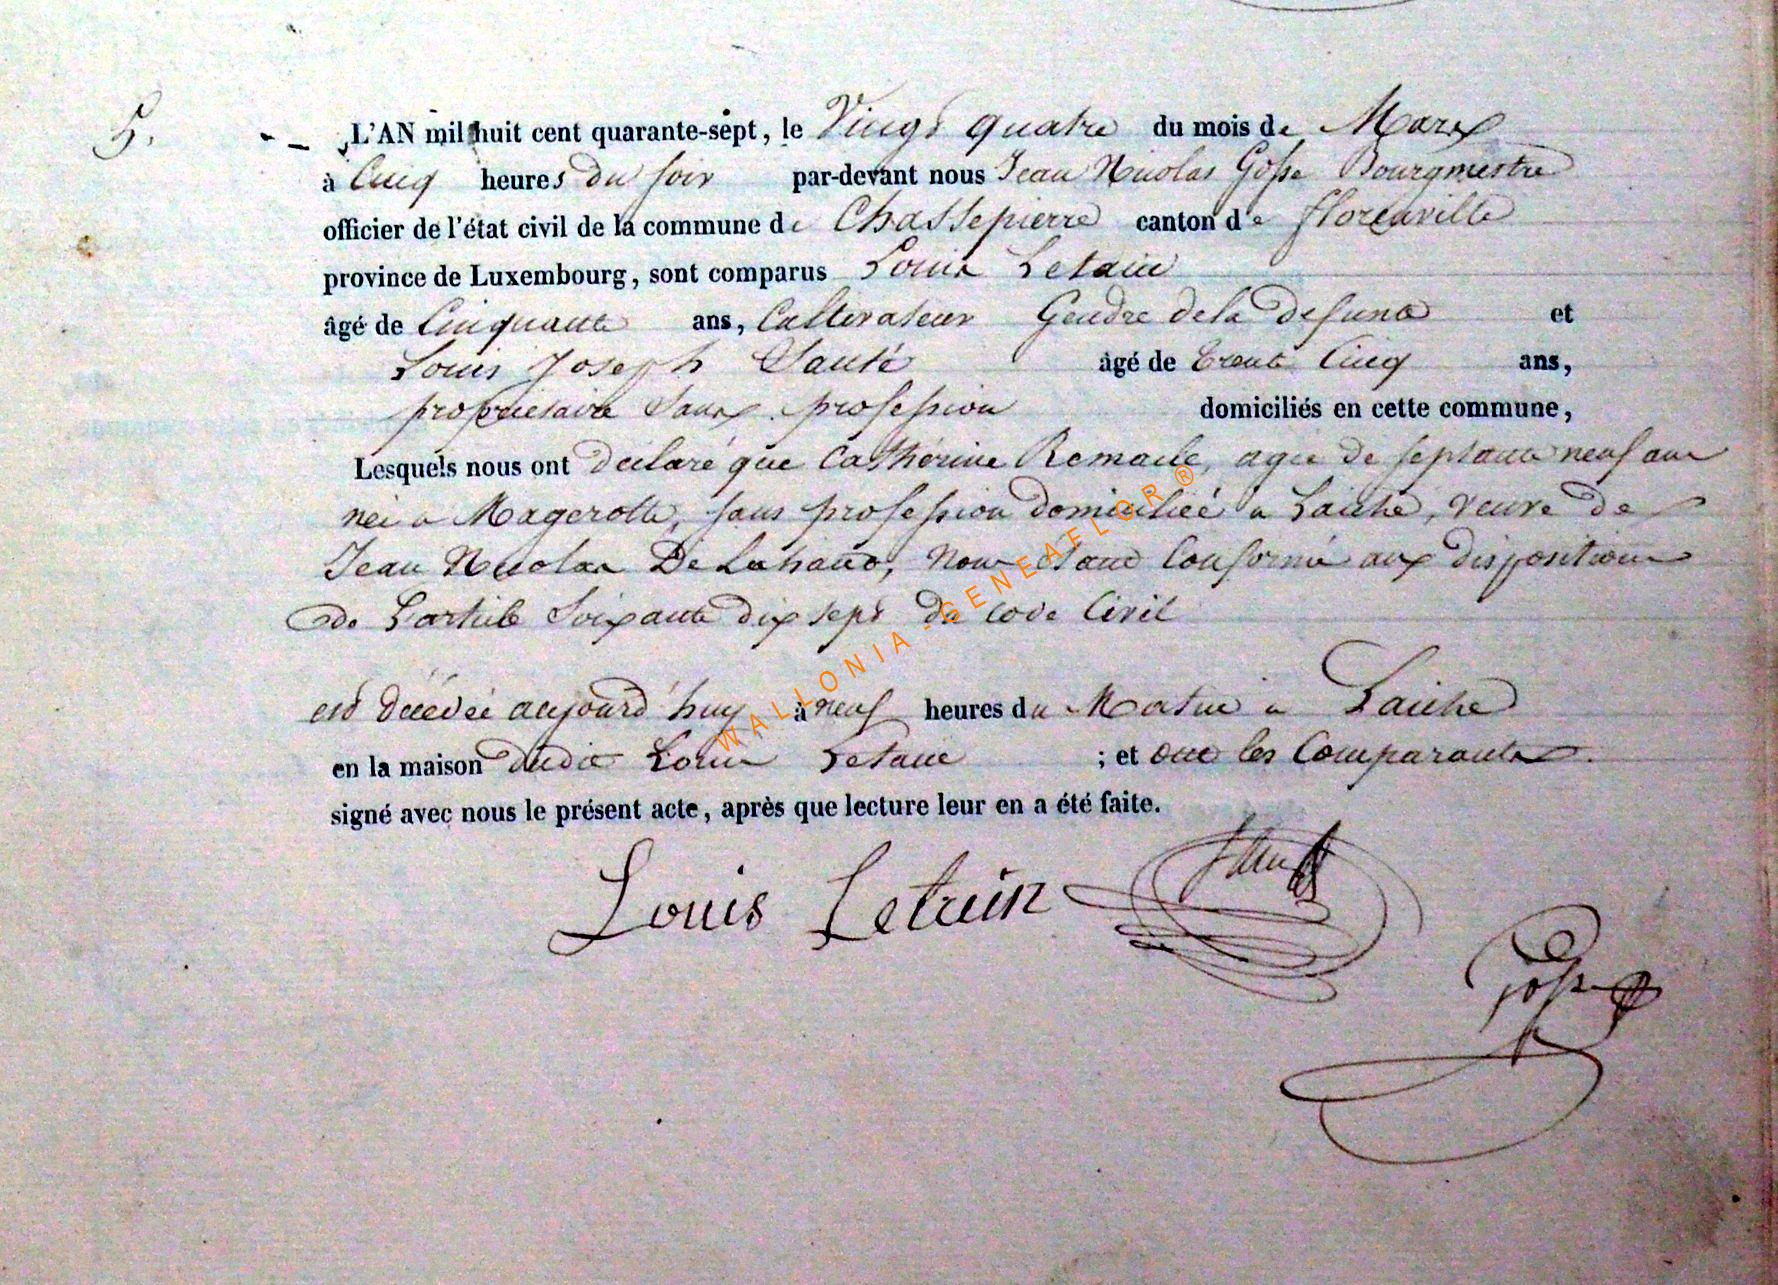 5.
L'AN mil huit cent quarante-sept, le Vingt quatre du mois de Mars
à Cinq heures du soir par-devant nous Jean Nicolas Gosse Bourgmestre
officier de l'état civil de la commune de Chassepierre canton de florenville
province de Luxembourg, sont comparus Louis Letain
âgé de Cinquante ans, Cultivateur Gendre de la defunte et
Louis Joseph âgé de trente Cinq ans,
propriétaire Sans profession domiciliés en cette commune,
Lesquels nous ont déclaré que Catherine Remacle, agée de septante neuf ans
née a Magerotte, sans profession domiciliée a Laiche, veuve de
Jean Nicolas De Lahaut, nous étant Conformé aux dispositions
de Larticle Soixante dix sept du code Civil
est décédée aujourd'huy à neuf heures du Matin a Laiche
en la maison dudit Louis Letain ; et ont les Comparants
signé avec nous le présent acte, après que lecture leur en a été faite.
Louis Letain
Gosse
WALLONIA-GENEAFLOR®